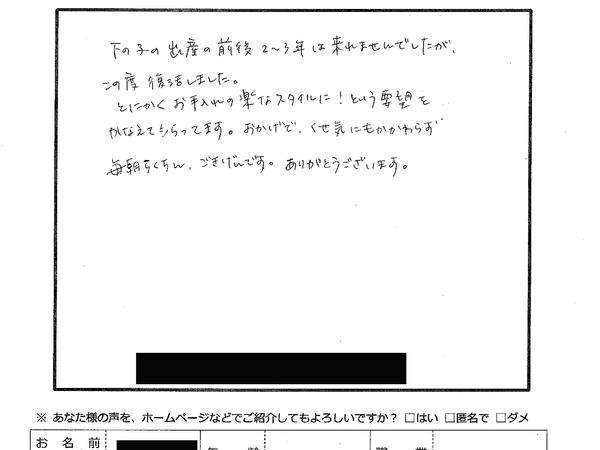 下の子の出産の前後2~3年は来れませんでしたが、
この度復活しました。
とにかくお手入れの楽なスタイルに!という要望を
かなえてもらってます。おかげで、くせ気にもかかわらず
毎朝らくちん、ごきげんです。ありがとうございます。
※ あなた様の声を、ホームページなどでご紹介してもよろしいですか? □はい □匿名で □ダメ
お名前 年齢 職業